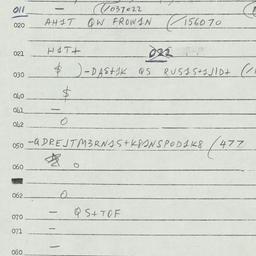 011 — (/037022
020 AH1T QW FROWIN (/156070
021 H1T+ 022
030 $ )-DAS+1K QS RUS1S+1J1D+ (/
040 $
041 —
042 0
050 -QDREJTM3RN1S+K81NSPOD1K8 (477
060 0
062 0
070 — QS+TOF
071 —
080 —